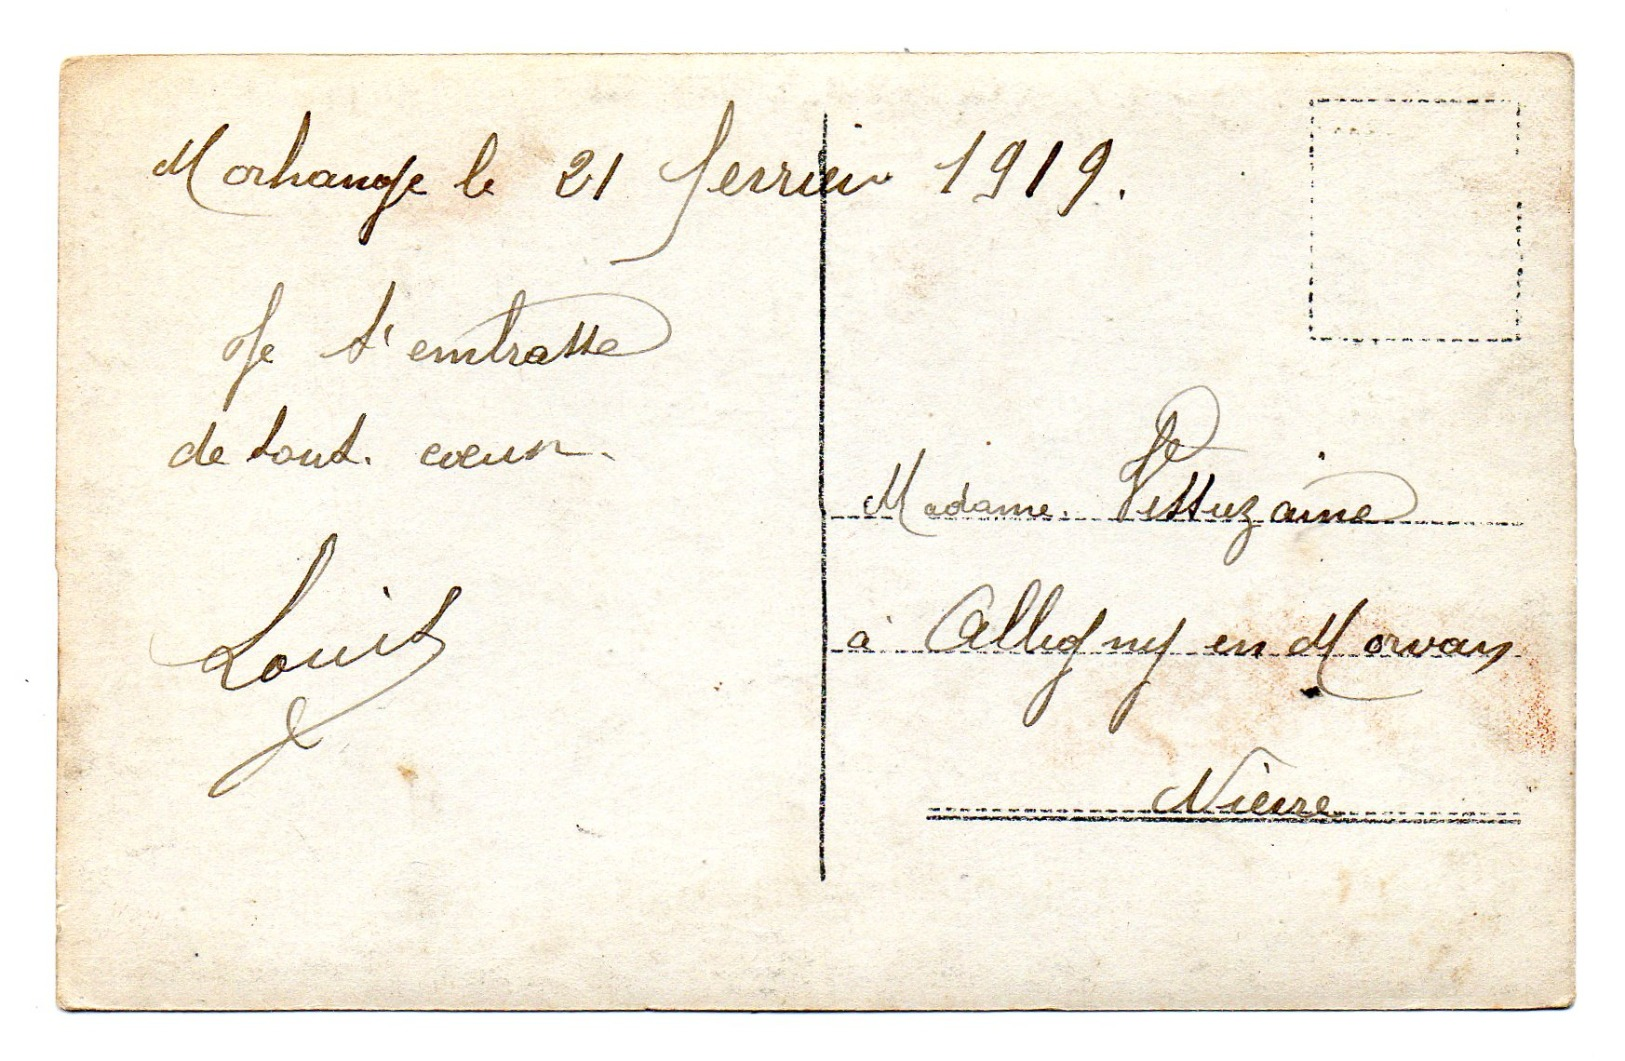 Morhange le 21 fevrier 1919.
Je t'embrasse
de tout. coeur.
Louis
Madame.
à Alligny en Morvan
Nièvre